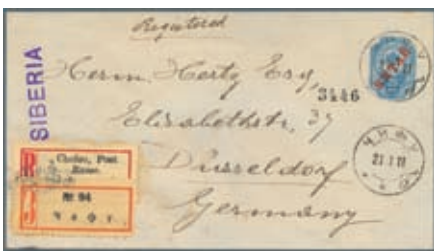 Registered
SIBERIA
Herrn. Hertz Esq,
3446
Elisabethstr, 37
Düsseldorf
Germany
R
Chefoo, Post.
Russe.
№ 94
ЧИФУ